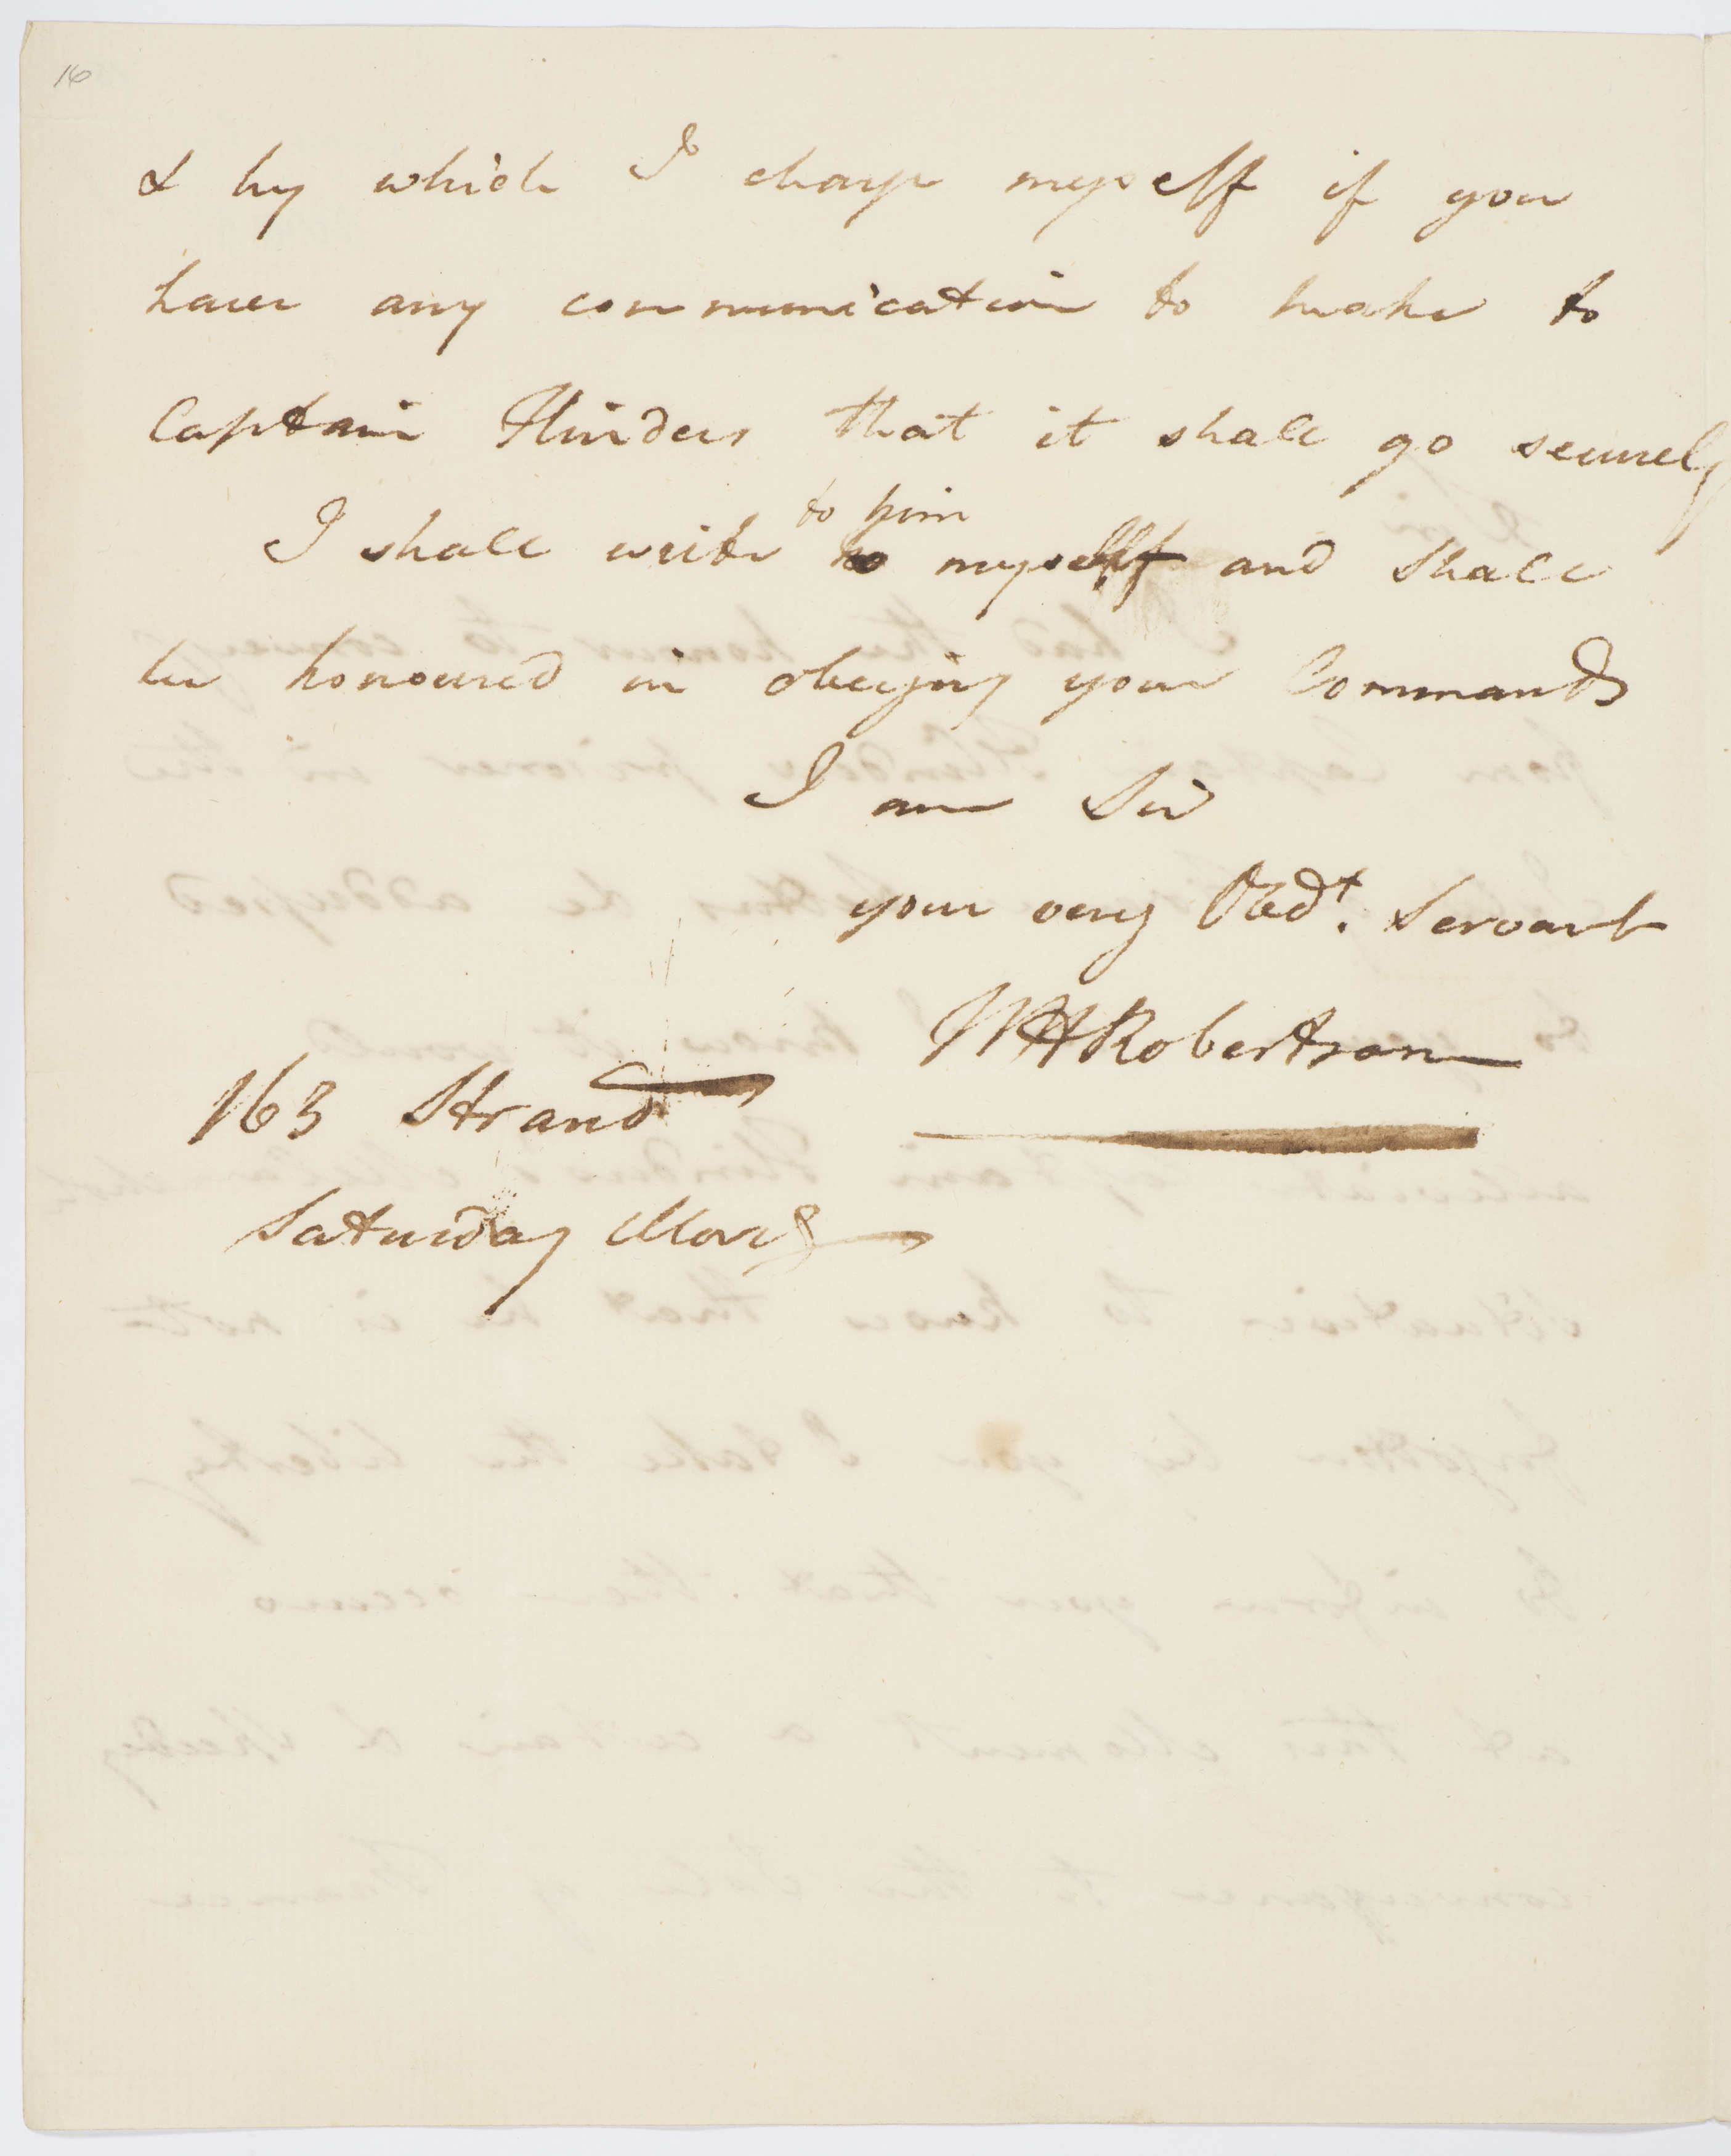 16
& by which I charge myself if you
have any communication to make to
Captain Flinders that it shall go securely
to him
I shall write myself and shall
be honoured in obeying your Commands
I am Sir
your very Obedt. Servant
WHRobertson
163 Strand
Saturday Morg